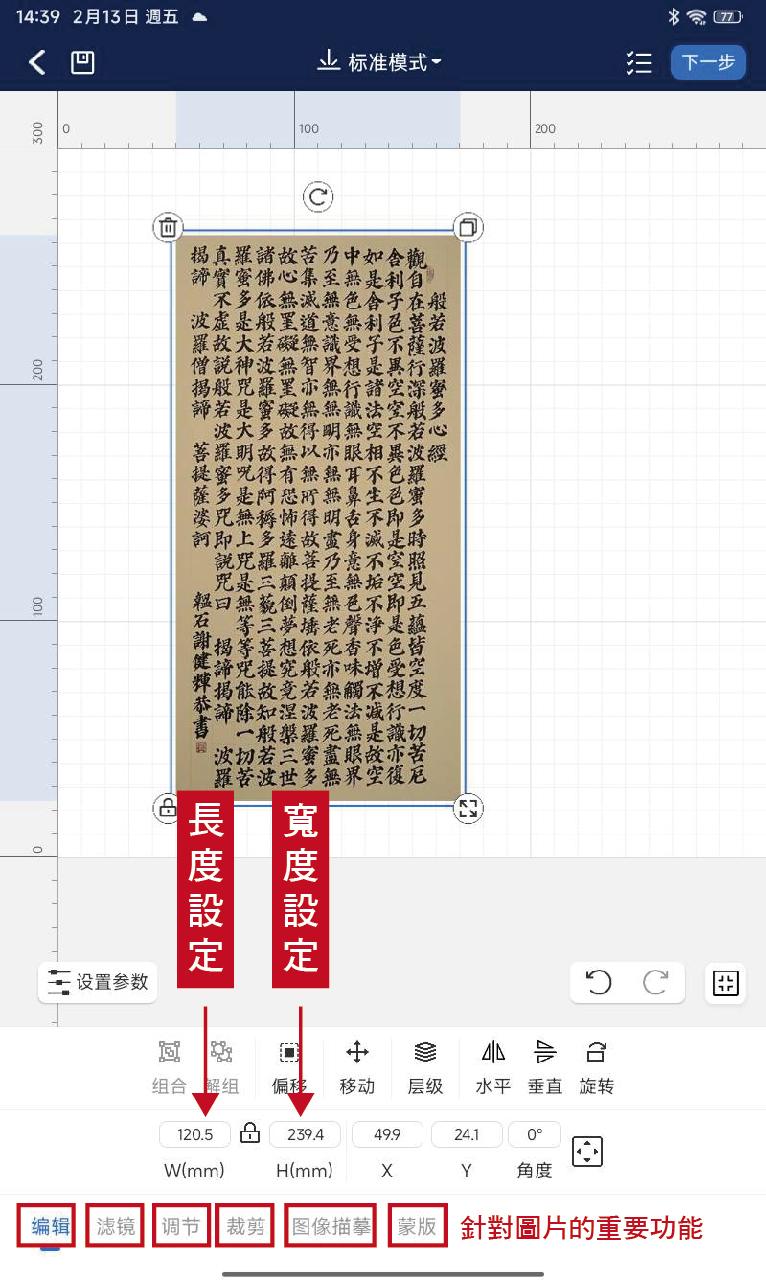 14:39 2月13日 週五 77
标准模式 下一步
0 100 200
300
200
100
0
般若波羅蜜多心經
觀自在菩薩行深般若波羅蜜多時照見五蘊皆空度一切苦厄
舍利子色不異空空不異色色即是空空即是色受想行識亦復
如是舍利子是諸法空相不生不滅不垢不淨不增不減是故空
中無色無受想行識無眼耳鼻舌身意無色聲香味觸法無眼界
乃至無意識界無無明亦無無明盡乃至無老死亦無老死盡無
苦集滅道無智亦無得以無所得故菩提薩埵依般若波羅蜜多
故心無罣礙無罣礙故無有恐怖遠離顛倒夢想究竟涅槃三世
諸佛依般若波羅蜜多故得阿耨多羅三藐三菩提故知般若波
羅蜜多是大神咒是大明咒是無上咒是無等等咒能除一切苦
真實不虛故說般若波羅蜜多咒即說咒曰 揭諦揭諦 波羅
揭諦 波羅僧揭諦 菩提薩婆訶
石謝健輝恭書
長度設定
寬度設定
设置参数
组合 解组 偏移 移动 层级 水平 垂直 旋转
120.5 239.4 49.9 24.1 0°
W(mm) H(mm) X Y 角度
编辑 滤镜 调节 裁剪 图像描摹 蒙版 針對圖片的重要功能